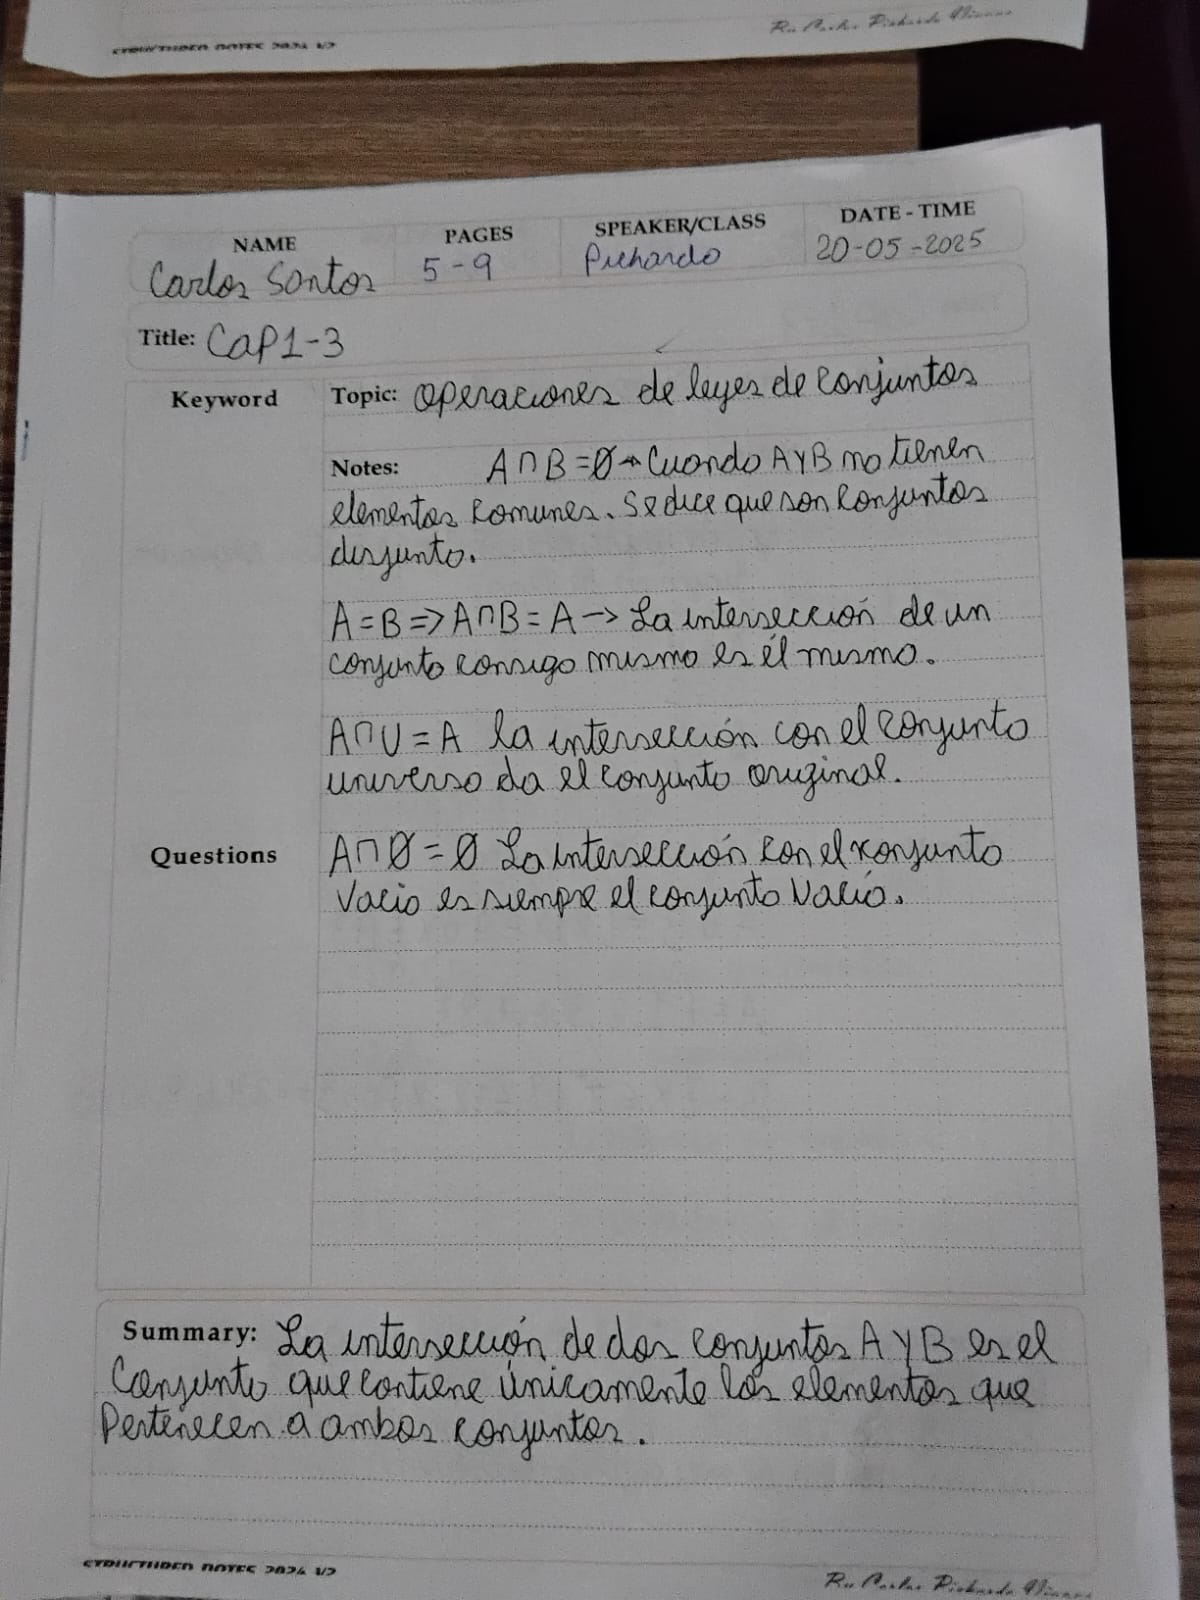 Ru Carlos Pichardo Viennas
STRUCTURED NOTES 2024 1/2
NAME PAGES SPEAKER/CLASS DATE - TIME
Carlos Santos 5-9 Pichardo 20-05-2025
Title: CaP1-3
Keyword Topic: Operaciones de leyes de Conjuntos
Notes: A∩B=Ø→Cuando AyB no tienen
elementos comunes. Se dice que son Conjuntos
disjunto.
A=B=>A∩B=A -> La intersección de un
conjunto consigo mismo es él mismo.
A∩U=A la intersección con el conjunto
universo da el conjunto original.
Questions A∩Ø=Ø La intersección con el conjunto
Vacio es siempre el conjunto Vacío.
Summary: La intersección de dos conjuntos A y B es el
Conjunto que contiene únicamente los elementos que
Pertenecen a ambos conjuntos.
STRUCTURED NOTES 2024 1/2
Ru Carlos Pichardo Viennas